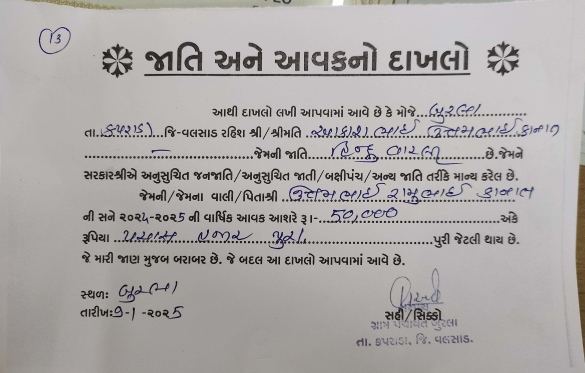 13
જાતિ અને આવકનો દાખલો
આથી દાખલો લખી આપવામાં આવે છે કે મોજે બુરલા
તા. કપરાડા જિ-વલસાડ રહિશ શ્રી/શ્રીમતિ આકાશભાઈ ઉત્તમભાઈ કાનાત
જેમની જાતિ હિન્દુ વારલી છે.જેમને
સરકારશ્રીએ અનુસુચિત જનજાતિ/અનુસુચિત જાતી/બક્ષીપંચ/અન્ય જાતિ તરીકે માન્ય કરેલ છે.
જેમની/જેમના વાલી/પિતાશ્રી ઉત્તમભાઈ રામુભાઈ કાનાત
ની સને ૨૦૨૪-૨૦૨૫ ની વાર્ષિક આવક આશરે રૂા- 50,000 અંકે
રૂપિયા પચાસ હજાર પુરા. પુરી જેટલી થાય છે.
જે મારી જાણ મુજબ બરાબર છે. જે બદલ આ દાખલો આપવામાં આવે છે.
સ્થળ: બુરલા
તારીખ: 9-1-૨૦૨5
સહી/સિક્કો
ગ્રામ પંચાયત બુરલા
તા. કપરાડા, જિ. વલસાડ.